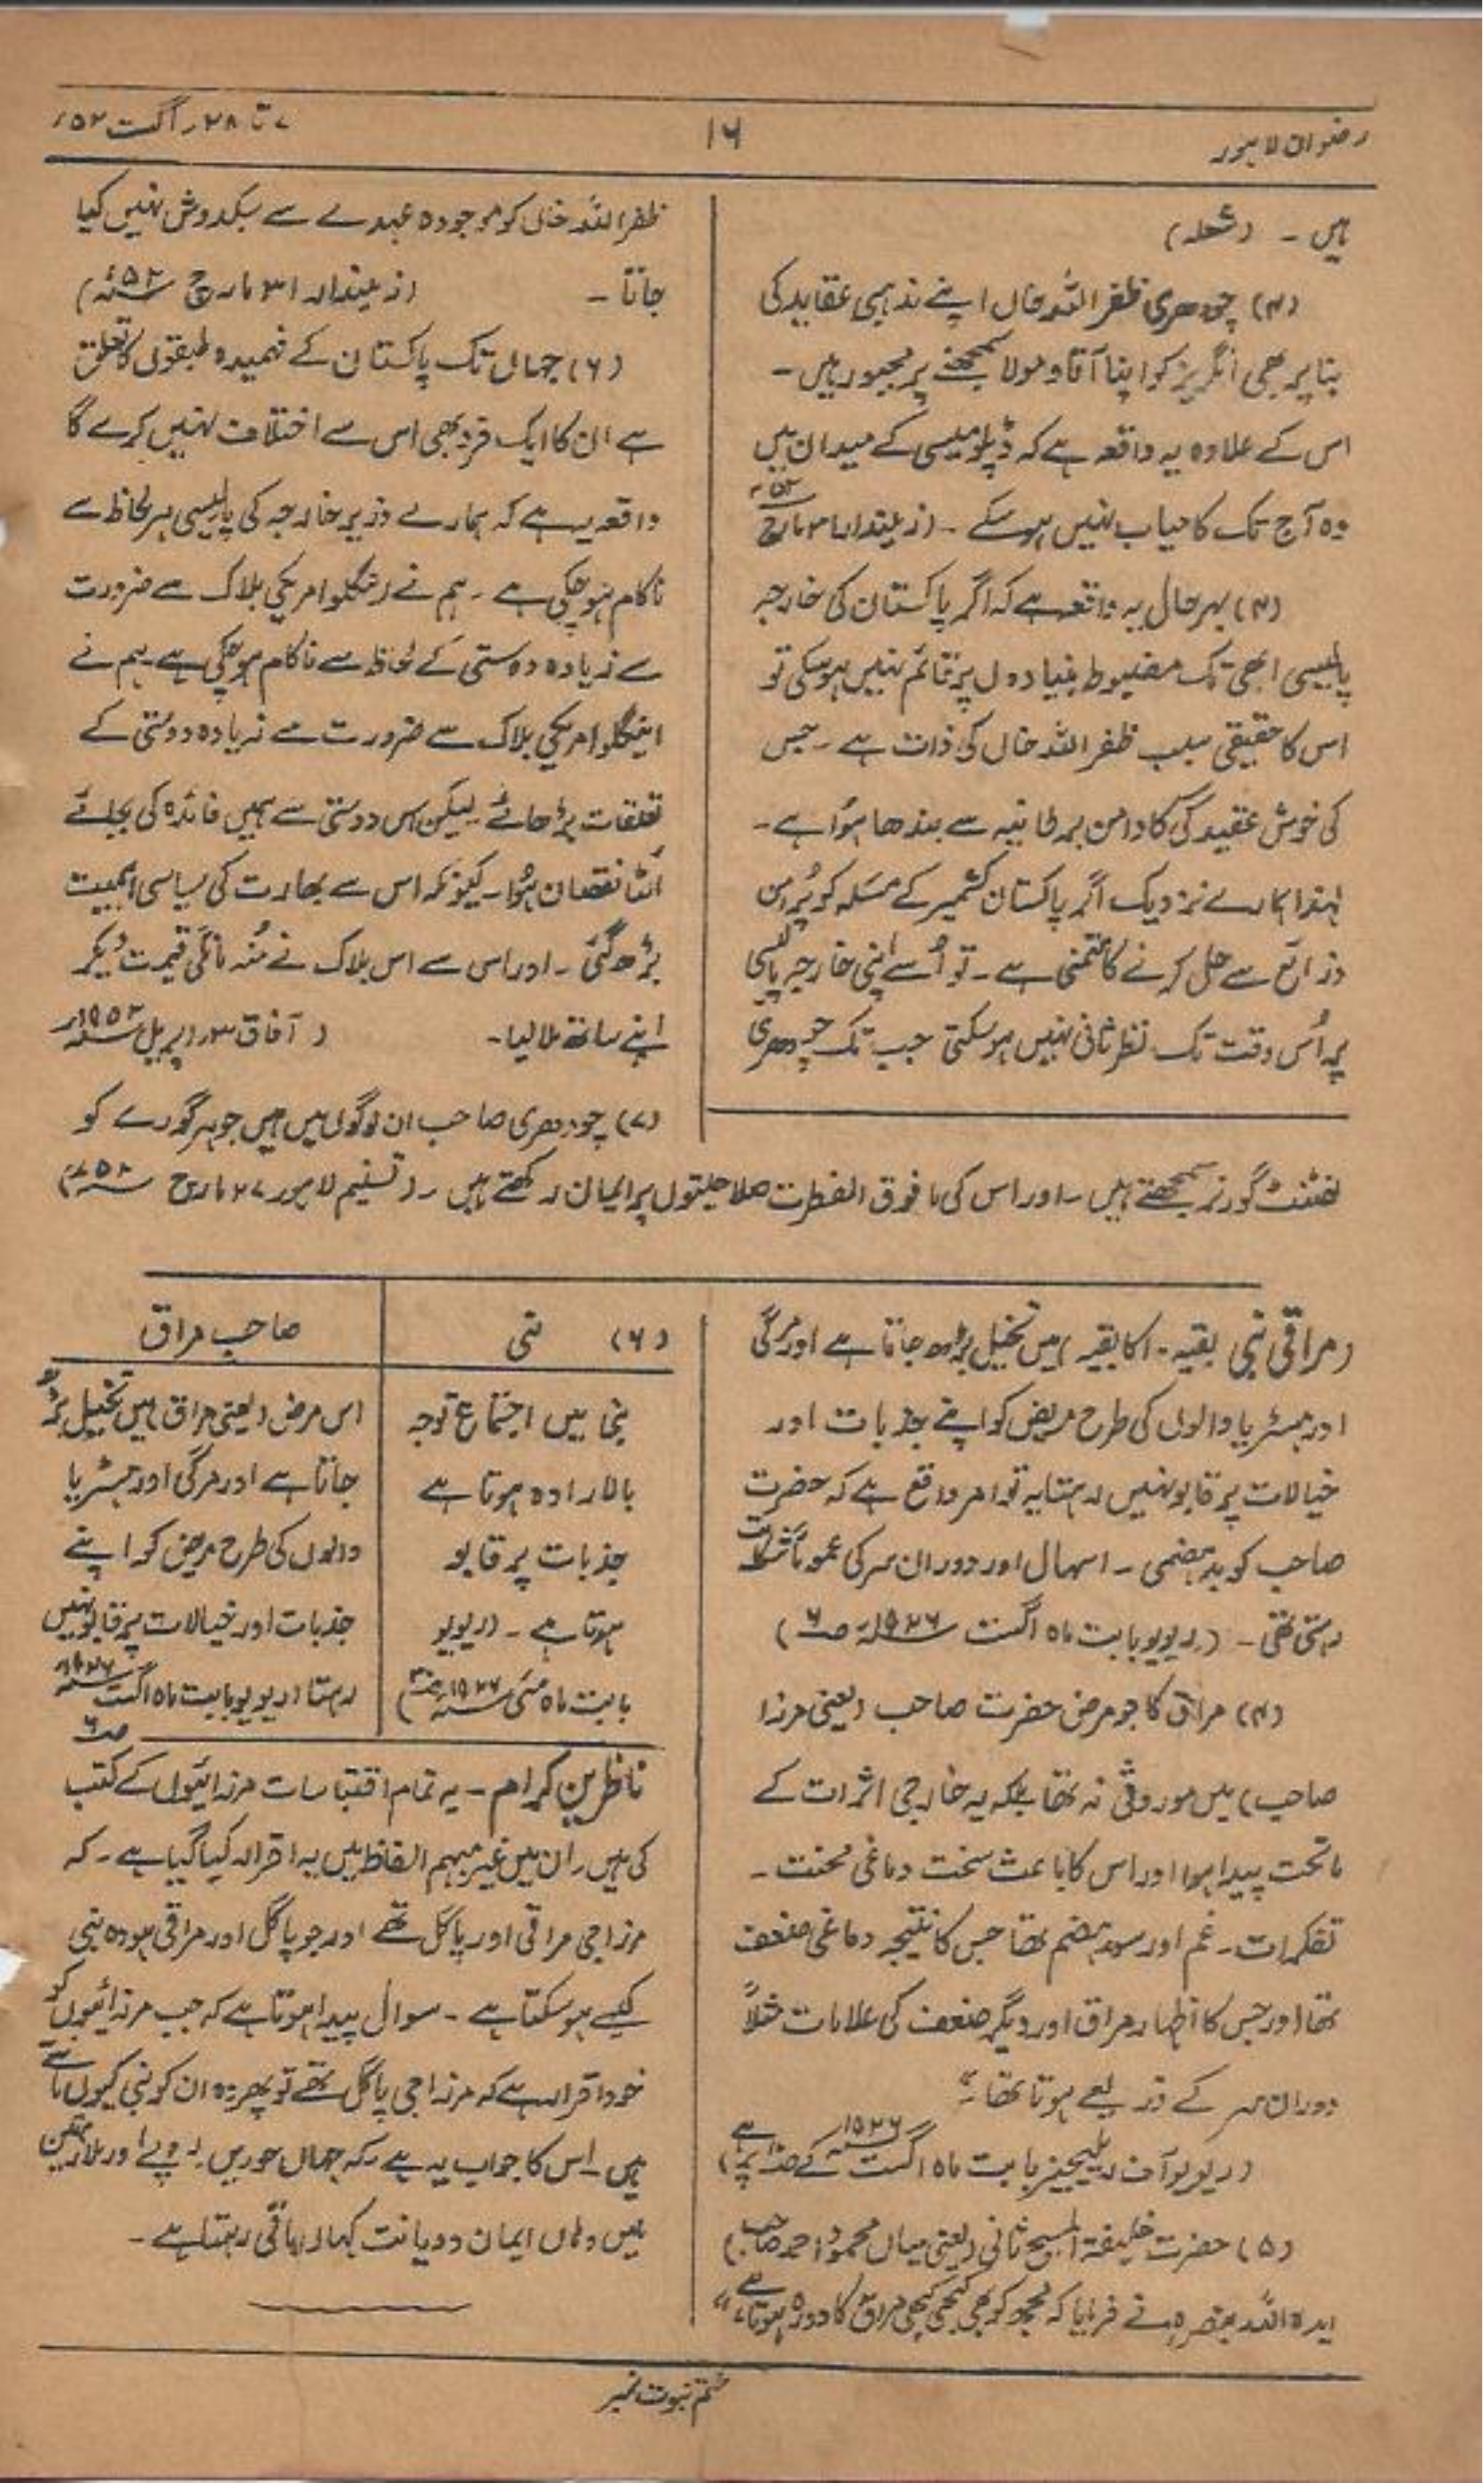 رضوان لاہور
۱۶
۷ تا ۲۸ ر اگست ۵۲ء
ہیں ۔ (شعلہ)
(۳) چودھری ظفر اللہ خاں اپنے مذہبی عقاید کی
بنا پر بھی انگریز کو اپنا آقا و مولا سمجھنے پر مجبور ہیں ۔
اس کے علاوہ یہ واقعہ ہے کہ ڈپلومیسی کے میدان میں
وہ آج تک کامیاب نہیں ہو سکے ۔ (زمیندار مارچ ۵۲ء
(۴) بہر حال یہ واقعہ ہے کہ اگر پاکستان کی خارجہ
پالیسی ابھی تک مضبوط بنیادوں پر قائم نہیں ہو سکی تو
اس کا حقیقی سبب ظفر اللہ خاں کی ذات ہے ۔ جس
کی خوش عقیدگی کا دامن برطانیہ سے بندھا ہوا ہے ۔
لہذا ہمارے نزدیک اگر پاکستان کشمیر کے مسئلہ کو پُر امن
ذرائع سے حل کرنے کا متمنی ہے ۔ تو اُسے اپنی خارجہ پالیسی
پر اُس وقت تک نظر ثانی نہیں ہو سکتی جب تک چودھری
ظفر اللہ خاں کو موجودہ عہدے سے سبکدوش نہیں کیا
جاتا ۔ (زمیندار ۳۱ مارچ ۵۲ء)
(۶) جہاں تک پاکستان کے فہمیدہ طبقوں کا تعلق
ہے ان کا ایک فرد بھی اس سے اختلاف نہیں کرے گا
واقعہ یہ ہے کہ ہمارے وزیر خارجہ کی پالیسی ہر لحاظ سے
ناکام ہو چکی ہے ۔ ہم نے اینگلو امریکی بلاک سے ضرورت
سے زیادہ دوستی کے لحاظ سے ناکام ہو چکی ہے ۔ ہم نے
اینگلو امریکی بلاک سے ضرورت سے زیادہ دوستی کے
تعلقات بڑھائے ۔ لیکن اس دوستی سے ہمیں فائدہ کی بجائے
اُلٹا نقصان ہُوا ۔ کیونکہ اس سے بھارت کی سیاسی اہمیت
بڑھ گئی ۔ اور اس سے اس بلاک نے مُنہ مانگی قیمت دیکر
اپنے ساتھ ملا لیا ۔ ( آفاق ۳ر اپریل ۱۹۵۲ء
(۷) چودھری صاحب ان لوگوں میں ہیں جو ہر گورے کو
لفٹنٹ گورنر سمجھتے ہیں ۔ اور اس کی ما فوق الفطرت صلاحیتوں پر ایمان رکھتے ہیں ۔ (تسنیم لاہور ۲۷ مارچ ۵۲ء)
(مراقی نبی بقیہ ۔ کا بقیہ) میں تخیل بڑھ جاتا ہے اور مرگی
اور ہسٹریا والوں کی طرح مریض کو اپنے جذبات اور
خیالات پر قابو نہیں رہتا یہ تو امر واقع ہے کہ حضرت
صاحب کو بدہضمی ۔ اسہال اور دوران سر کی عموماً شکایت
رہتی تھی ۔ (ریویو بابت ماہ اگست ۱۹۲۶ء ص ۶)
(۴) مراق کا جو مرض حضرت صاحب (یعنی مرزا
صاحب) میں موروثی نہ تھا بلکہ یہ خارجی اثرات کے
ماتحت پیدا ہوا اور اس کا باعث سخت دماغی محنت ۔
تفکرات ۔ غم اور سوء ہضم تھا جس کا نتیجہ دماغی ضعف
تھا اور جس کا اظہار مراق اور دیگر ضعف کی علامات مثلاً
دوران سر کے ذریعے ہوتا تھا ۔"
(ریویو آف ریلیجنز بابت ماہ اگست ۱۹۲۶ء کے صـ پر ہے)
(۵) حضرت خلیفۃ المسیح ثانی (یعنی میاں محمود احمد صاحب)
ایدہ اللہ بنصرہ نے فرمایا کہ مجھ کو بھی کبھی کبھی مراق کا دورہ ہوتا ہے "
(۶) نبی
صاحب مراق
نبی میں اجتماع توجہ
بالارادہ ہوتا ہے
جذبات پر قابو
ہوتا ہے ۔ (ریویو
بابت ماہ مئی ۱۹۲۷ء)
اس مرض (یعنی مراق) میں تخیل بڑھ
جاتا ہے اور مرگی اور ہسٹریا
والوں کی طرح مریض کو اپنے
جذبات اور خیالات پر قابو نہیں
رہتا (ریویو بابت ماہ اگست ۱۹۲۶ء
ص ۶
ناظرین کرام ۔ یہ تمام اقتباسات مرزائیوں کے کتب
کی ہیں ۔ ان میں غیر مبہم الفاظ میں یہ اقرار کیا گیا ہے ۔ کہ
مرزا جی مراقی اور پاگل تھے اور جو پاگل اور مراقی ہو وہ نبی
کیسے ہو سکتا ہے ۔ سوال پیدا ہوتا ہے کہ جب مرزائیوں کو
خود اقرار ہے کہ مرزا جی پاگل تھے تو پھر وہ ان کو نبی کیوں مانتے
ہیں ۔ اس کا جواب یہ ہے ۔ کہ جہاں حوریں روپے اور ملازمتیں
ہیں وہاں ایمان و دیانت کہاں باقی رہتا ہے ۔
ختم نبوت نمبر